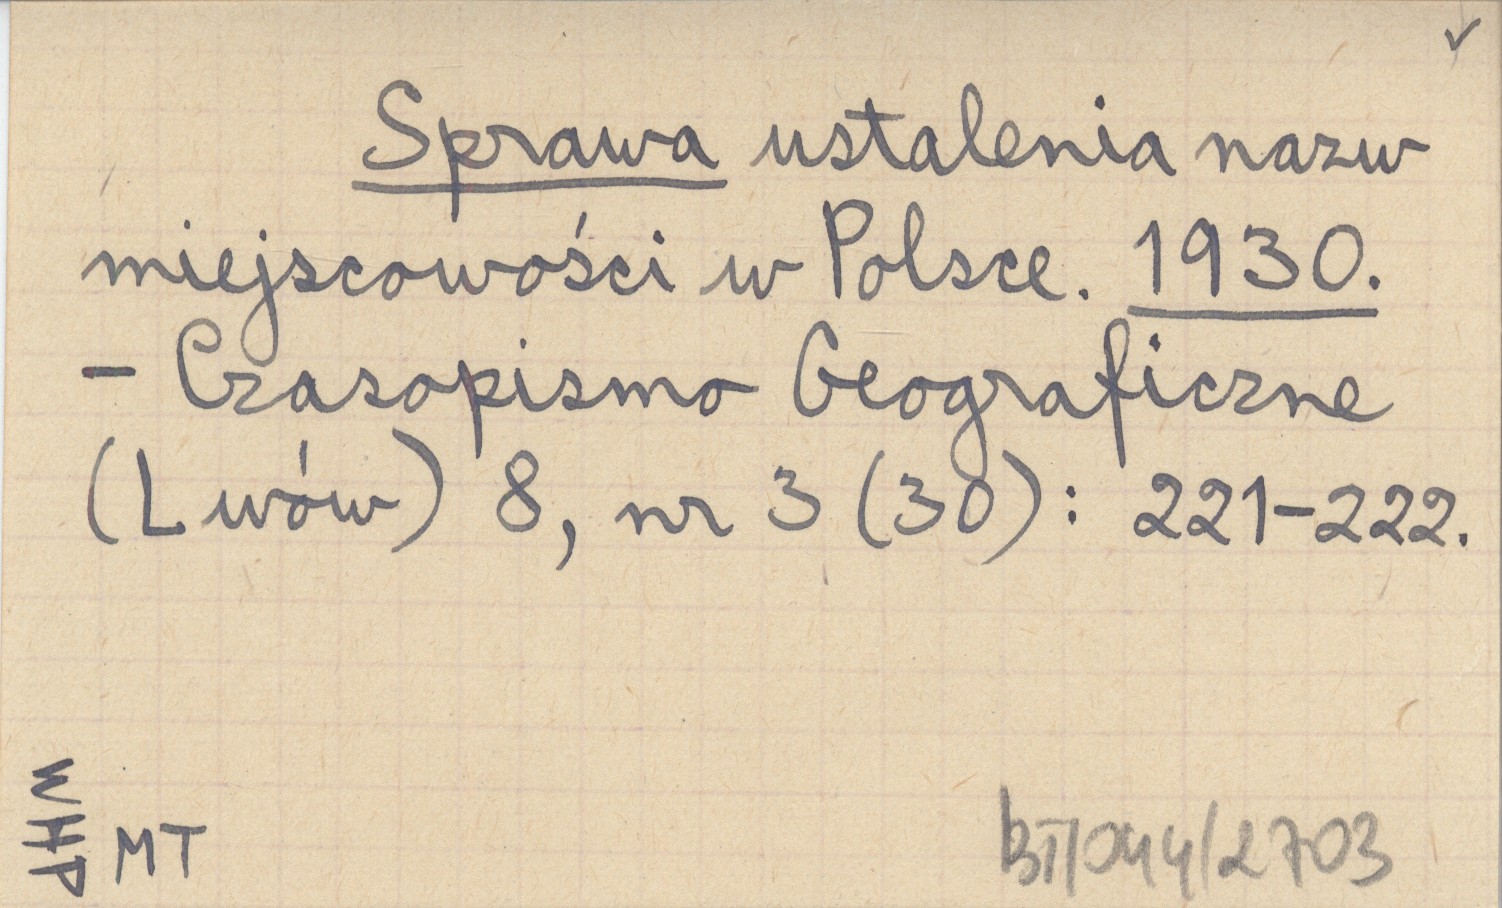 ✓
Sprawa ustalenia nazw
miejscowości w Polsce. 1930.
– Czasopismo Geograficzne
(Lwów) 8, nr 3 (30): 221–222.
WHP
MT
BT/044/2703